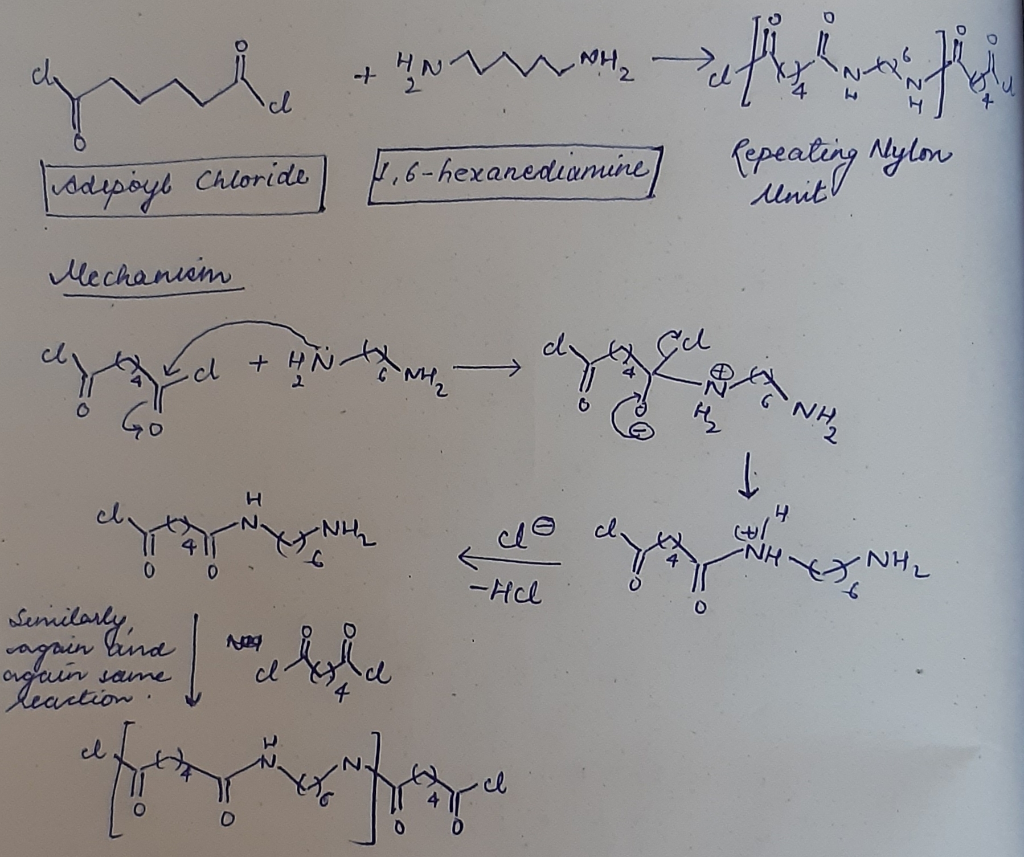 Cl O O Cl + H2N NH2 → Cl [ O O 4 N H 6 N H ] O O 4 Cl
Adipoyl Chloride 1,6-hexanediamine Repeating Nylon
Unit
Mechanism
Cl O 4 O Cl + H2N 6 NH2 → Cl O 4 O ⊖ Cl N ⊕ H2 6 NH2
Cl O 4 O N H 6 NH2 Cl⊖ -HCl Cl O 4 O (+) NH H 6 NH2
Similarly,
again and
again same
reaction.
Cl O O 4 Cl
Cl [ O 4 O N H 6 N ] O 4 O Cl